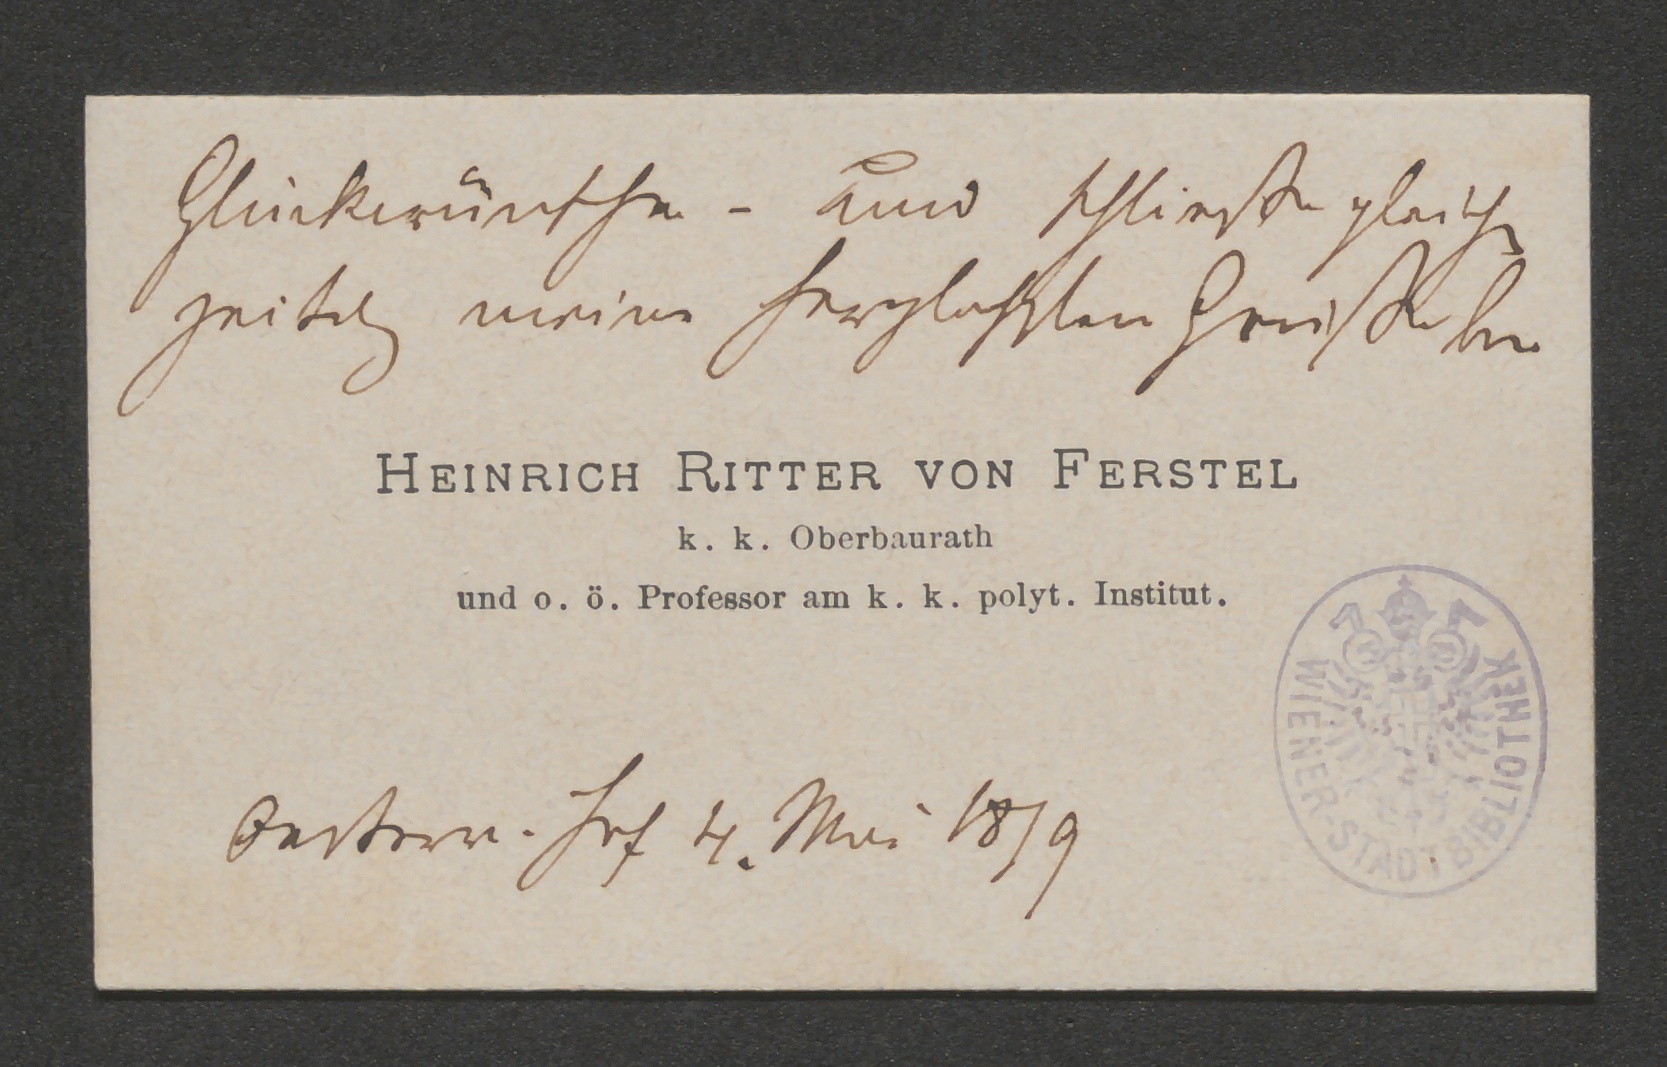 Glückwünsche - und schließe gleich
zeitig meine herzlichsten Grüße bei
HEINRICH RITTER VON FERSTEL
k. k. Oberbaurath
und o. ö. Professor am k. k. polyt. Institut.
Oesterr. Hof 4. Mai 1879
WIENER-STADTBIBLIOTHEK